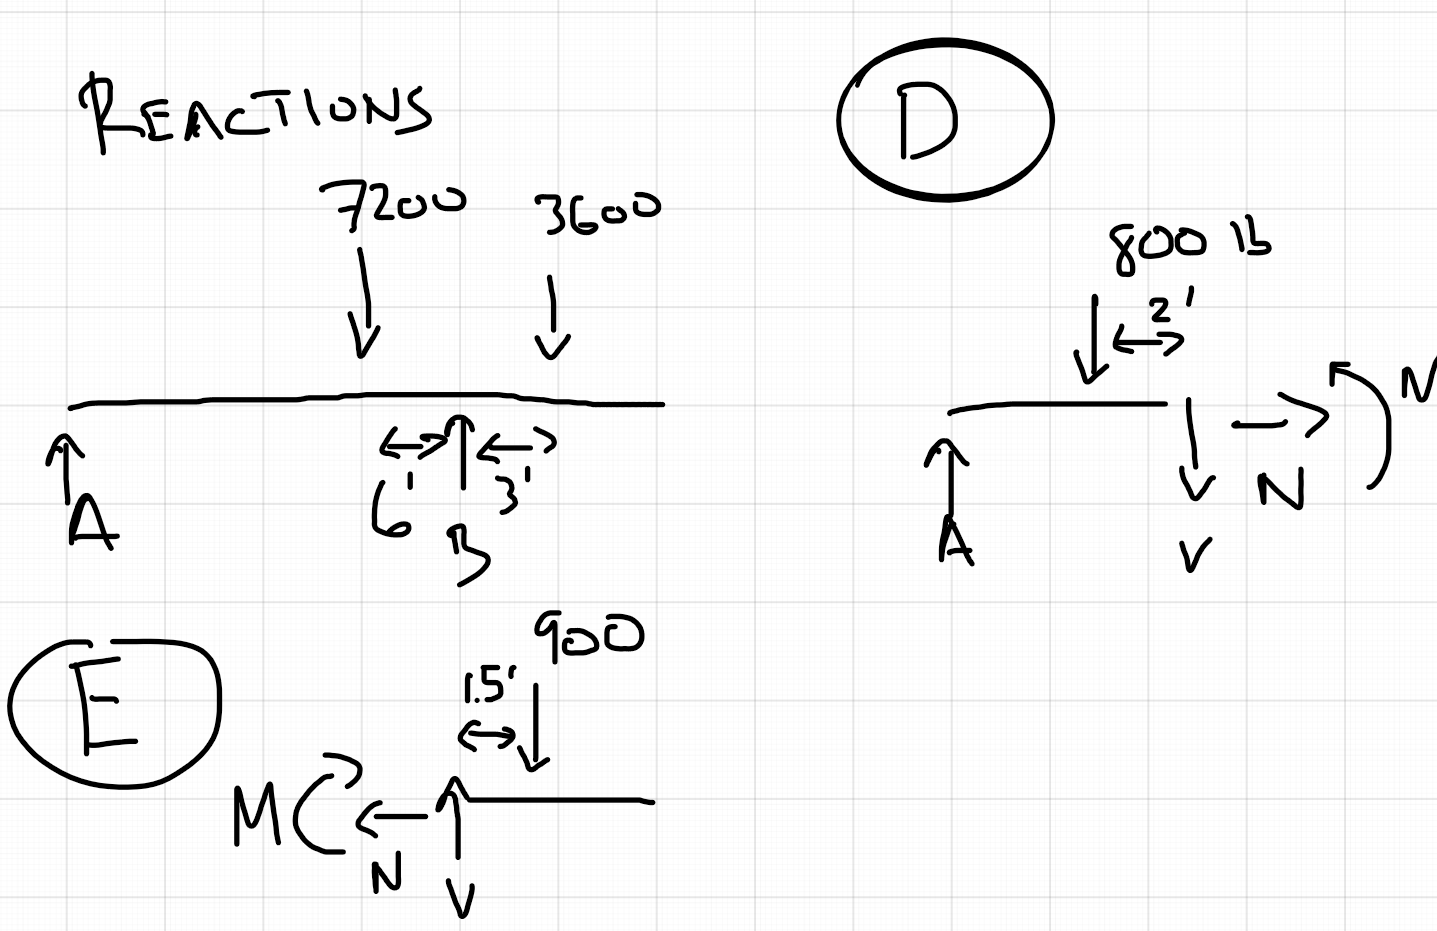 REACTIONS
7200 3600
A
6' 3'
B
D
800 lb
2'
A
V
N
E
900
1.5'
M
N
V